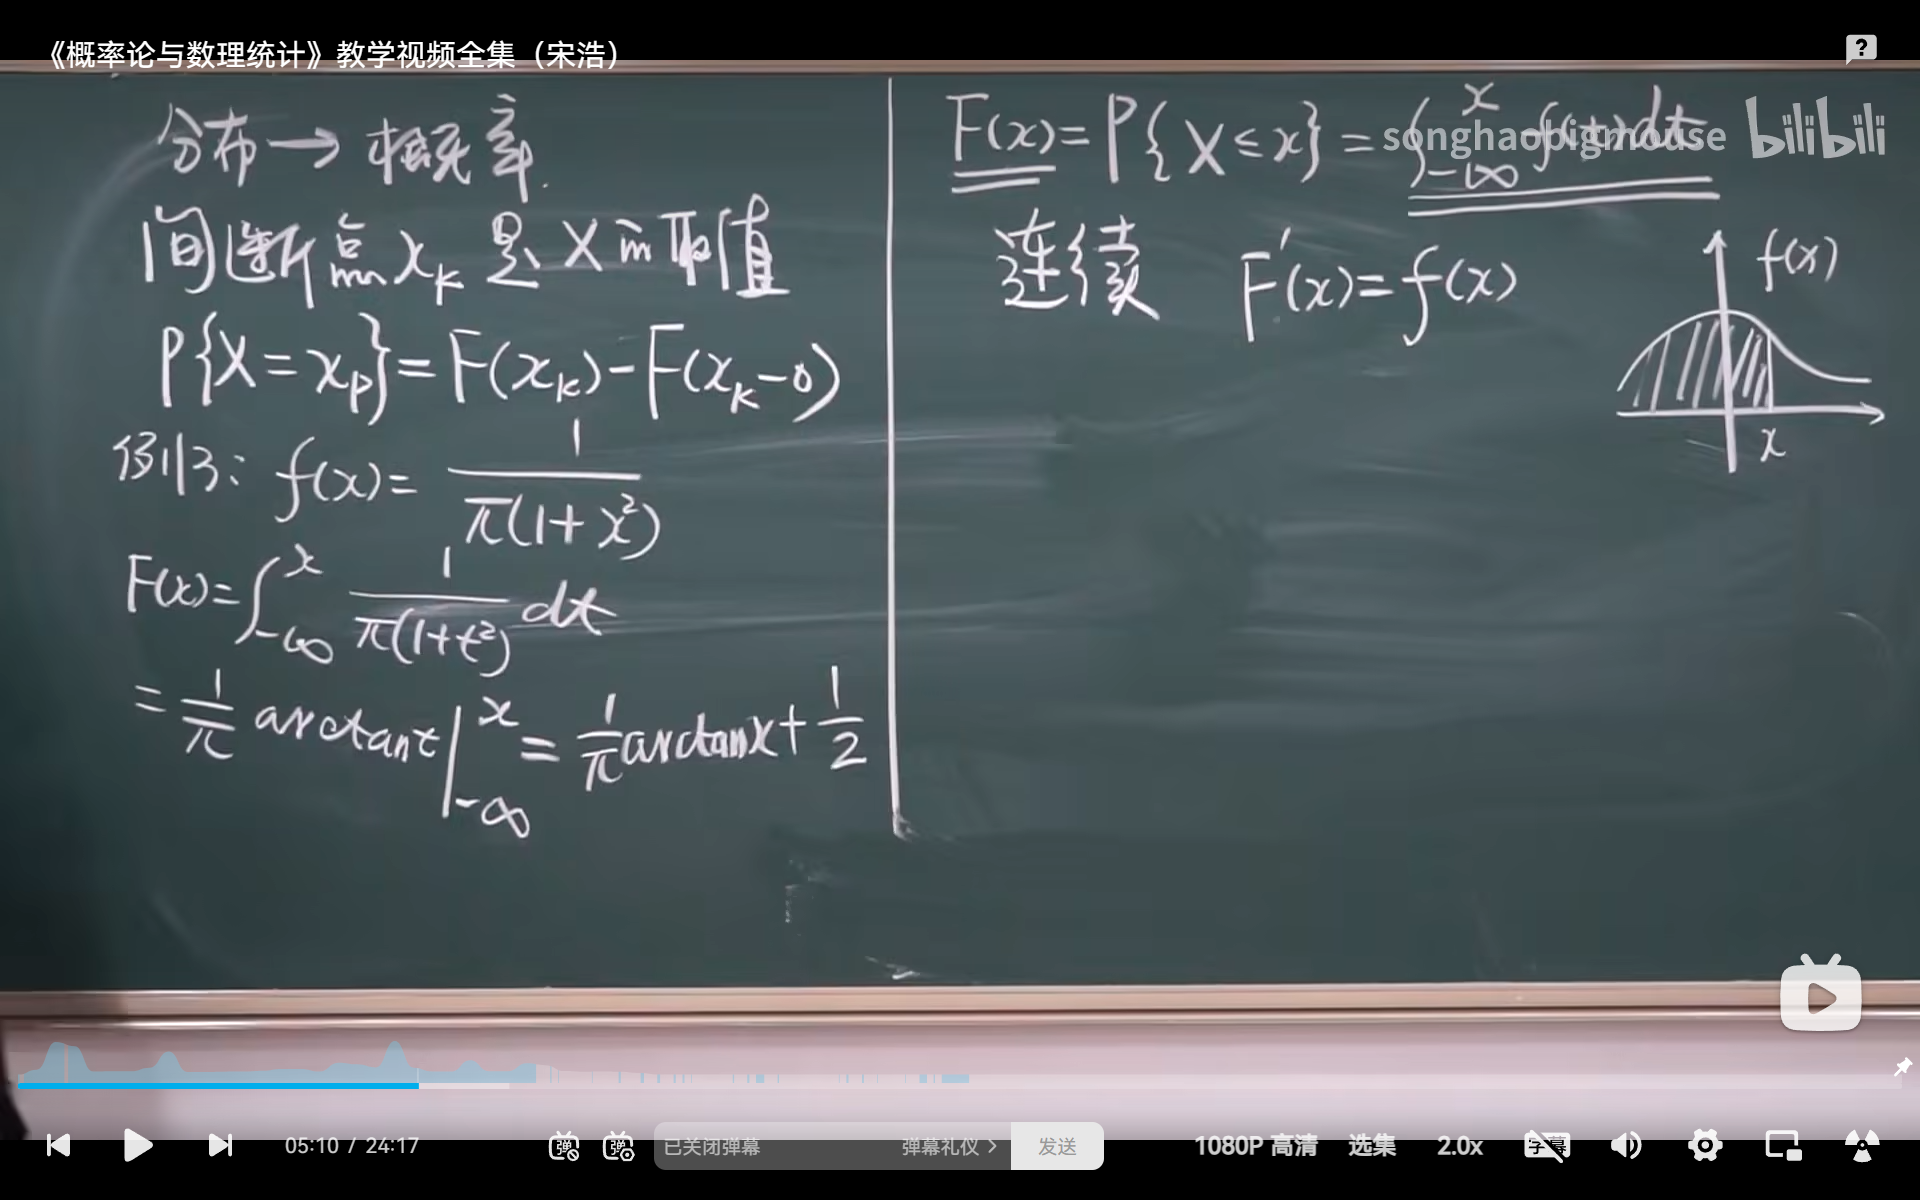 《概率论与数理统计》教学视频全集（宋浩）
分布→概率.
间断点x_k 是 X的取值
P{X=x_p}=F(x_k)-F(x_k-0)
例13: f(x)= 1/π(1+x²)
F(x)=∫_{-∞}^{x} 1/π(1+t²) dt
= 1/π arctant|_{-∞}^{x} = 1/π arctanx+1/2
F(x)=P{X≤x}=∫_{-∞}^{x} f(t)dt
songhaobigmouse bilibili
连续 F'(x)=f(x)
f(x)
x
05:10 / 24:17
已关闭弹幕 弹幕礼仪 发送
1080P 高清 选集 2.0x 字幕